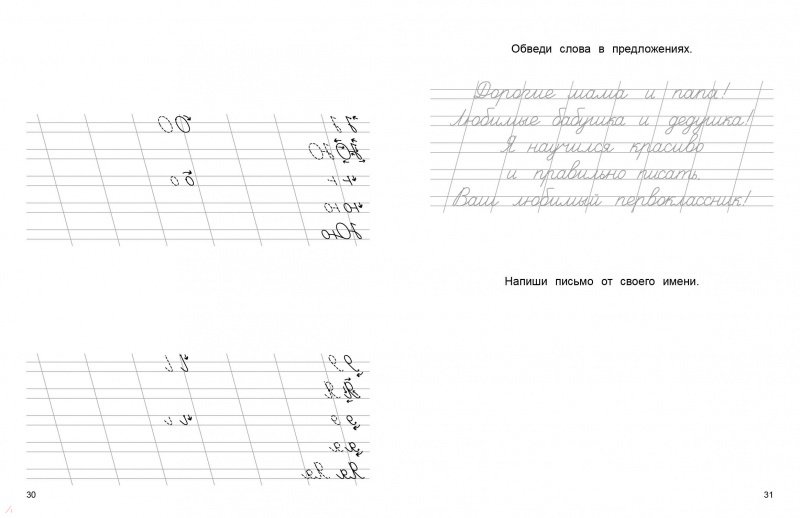 30
Обведи слова в предложениях.
Дорогие мама и папа!
Любимые бабушка и дедушка!
Я научился красиво
и правильно писать.
Ваш любимый первоклассник!
Напиши письмо от своего имени.
31